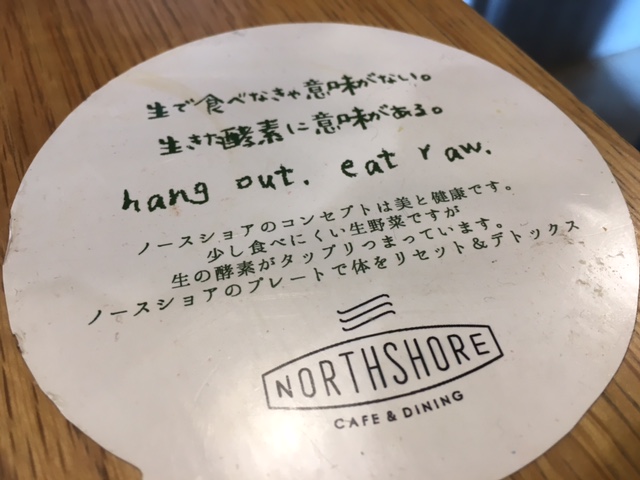 生で食べなきゃ意味がない。
生きた酵素に意味がある。
hang out. eat raw.
ノースショアのコンセプトは美と健康です。
少し食べにくい生野菜ですが
生の酵素がタップリつまっています。
ノースショアのプレートで体をリセット＆デトックス
NORTHSHORE
CAFE & DINING